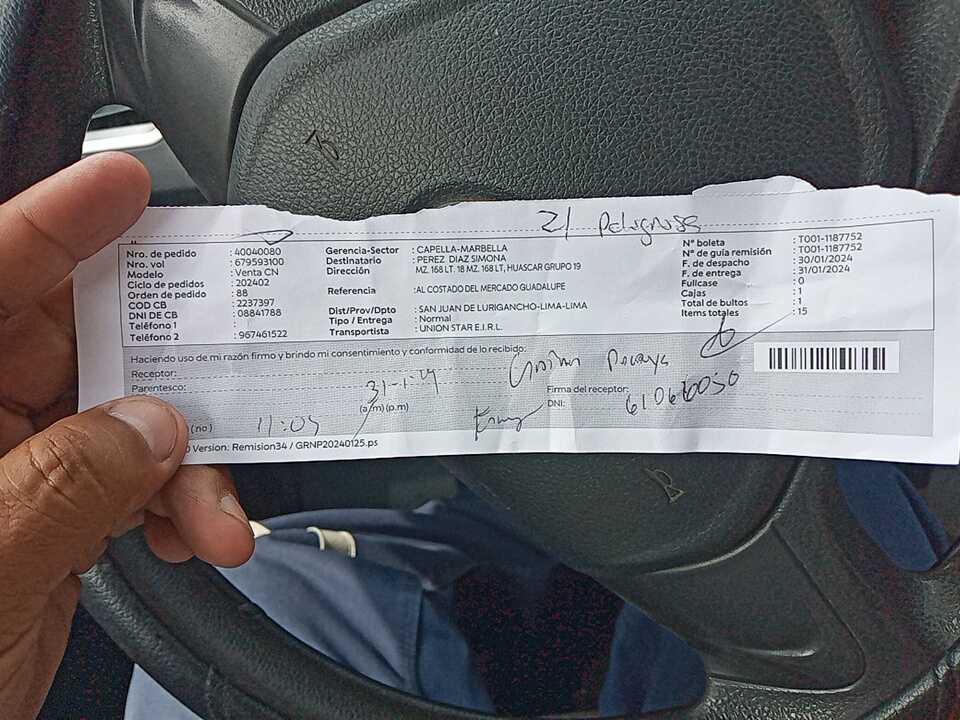 21 Peligrosa
Nro. de pedido : 40040080
Nro. vol : 679593100
Modelo : Venta CN
Ciclo de pedidos : 202402
Orden de pedido : 88
COD CB : 2237397
DNI DE CB : 08841788
Teléfono 1 :
Teléfono 2 : 967461522
Gerencia-Sector : CAPELLA-MARBELLA
Destinatario : PEREZ DIAZ SIMONA
Dirección MZ. 168 LT. 18 MZ. 168 LT, HUASCAR GRUPO 19
Referencia : AL COSTADO DEL MERCADO GUADALUPE
Dist/Prov/Dpto : SAN JUAN DE LURIGANCHO-LIMA-LIMA
Tipo / Entrega : Normal
Transportista : UNION STAR E.I.R.L.
N° boleta : T001-1187752
N° de guía remisión : T001-1187752
F. de despacho : 30/01/2024
F. de entrega : 31/01/2024
Fullcase : 0
Cajas : 1
Total de bultos : 1
Items totales : 15
Haciendo uso de mi razón firmo y brindo mi consentimiento y conformidad de lo recibido:
Receptor:
Parentesco:
31-1-24
(a/m) (p.m)
(no) 11:05
Firma del receptor:
DNI: 61066050
Version: Remision34 / GRNP20240125.ps